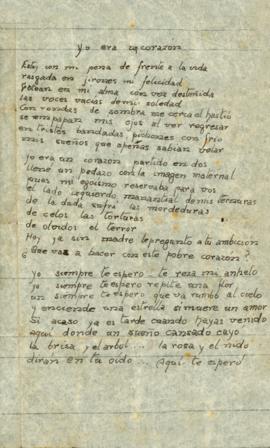 Yo era un corazón
Estoy con mi pena de frente a la vida
rasgada en jirones mi felicidad
Golpean en mi alma con voz destemida
las voces vacías de mi soledad
Con rondas de sombra me cerca el hastío
se empapan mis ojos al ver regresar
en tristes bandadas, pichones con frío
mis sueños que apenas sabían volar
yo era un corazón partido en dos
llené un pedazo con la imagen maternal
mas mi egoísmo reservaba para vos
el lado izquierdo, manantial de mis ternuras
de la duda sufrí las mordeduras
de celos las torturas
de olvidos el terror
Hoy ya sin madre le pregunto a tu ambición
¿Qué vas a hacer con este pobre corazón?
yo siempre te espero te reza mi anhelo
yo siempre te espero repite una flor
un siempre te espero que va rumbo al cielo
y enciende una estrella si muere un amor
Si acaso ya es tarde cuando hayas venido
aquí donde un sueño cansado cayó
la brisa y el árbol... la rosa y el nido
dirán en tu oído... Aquí te esperó